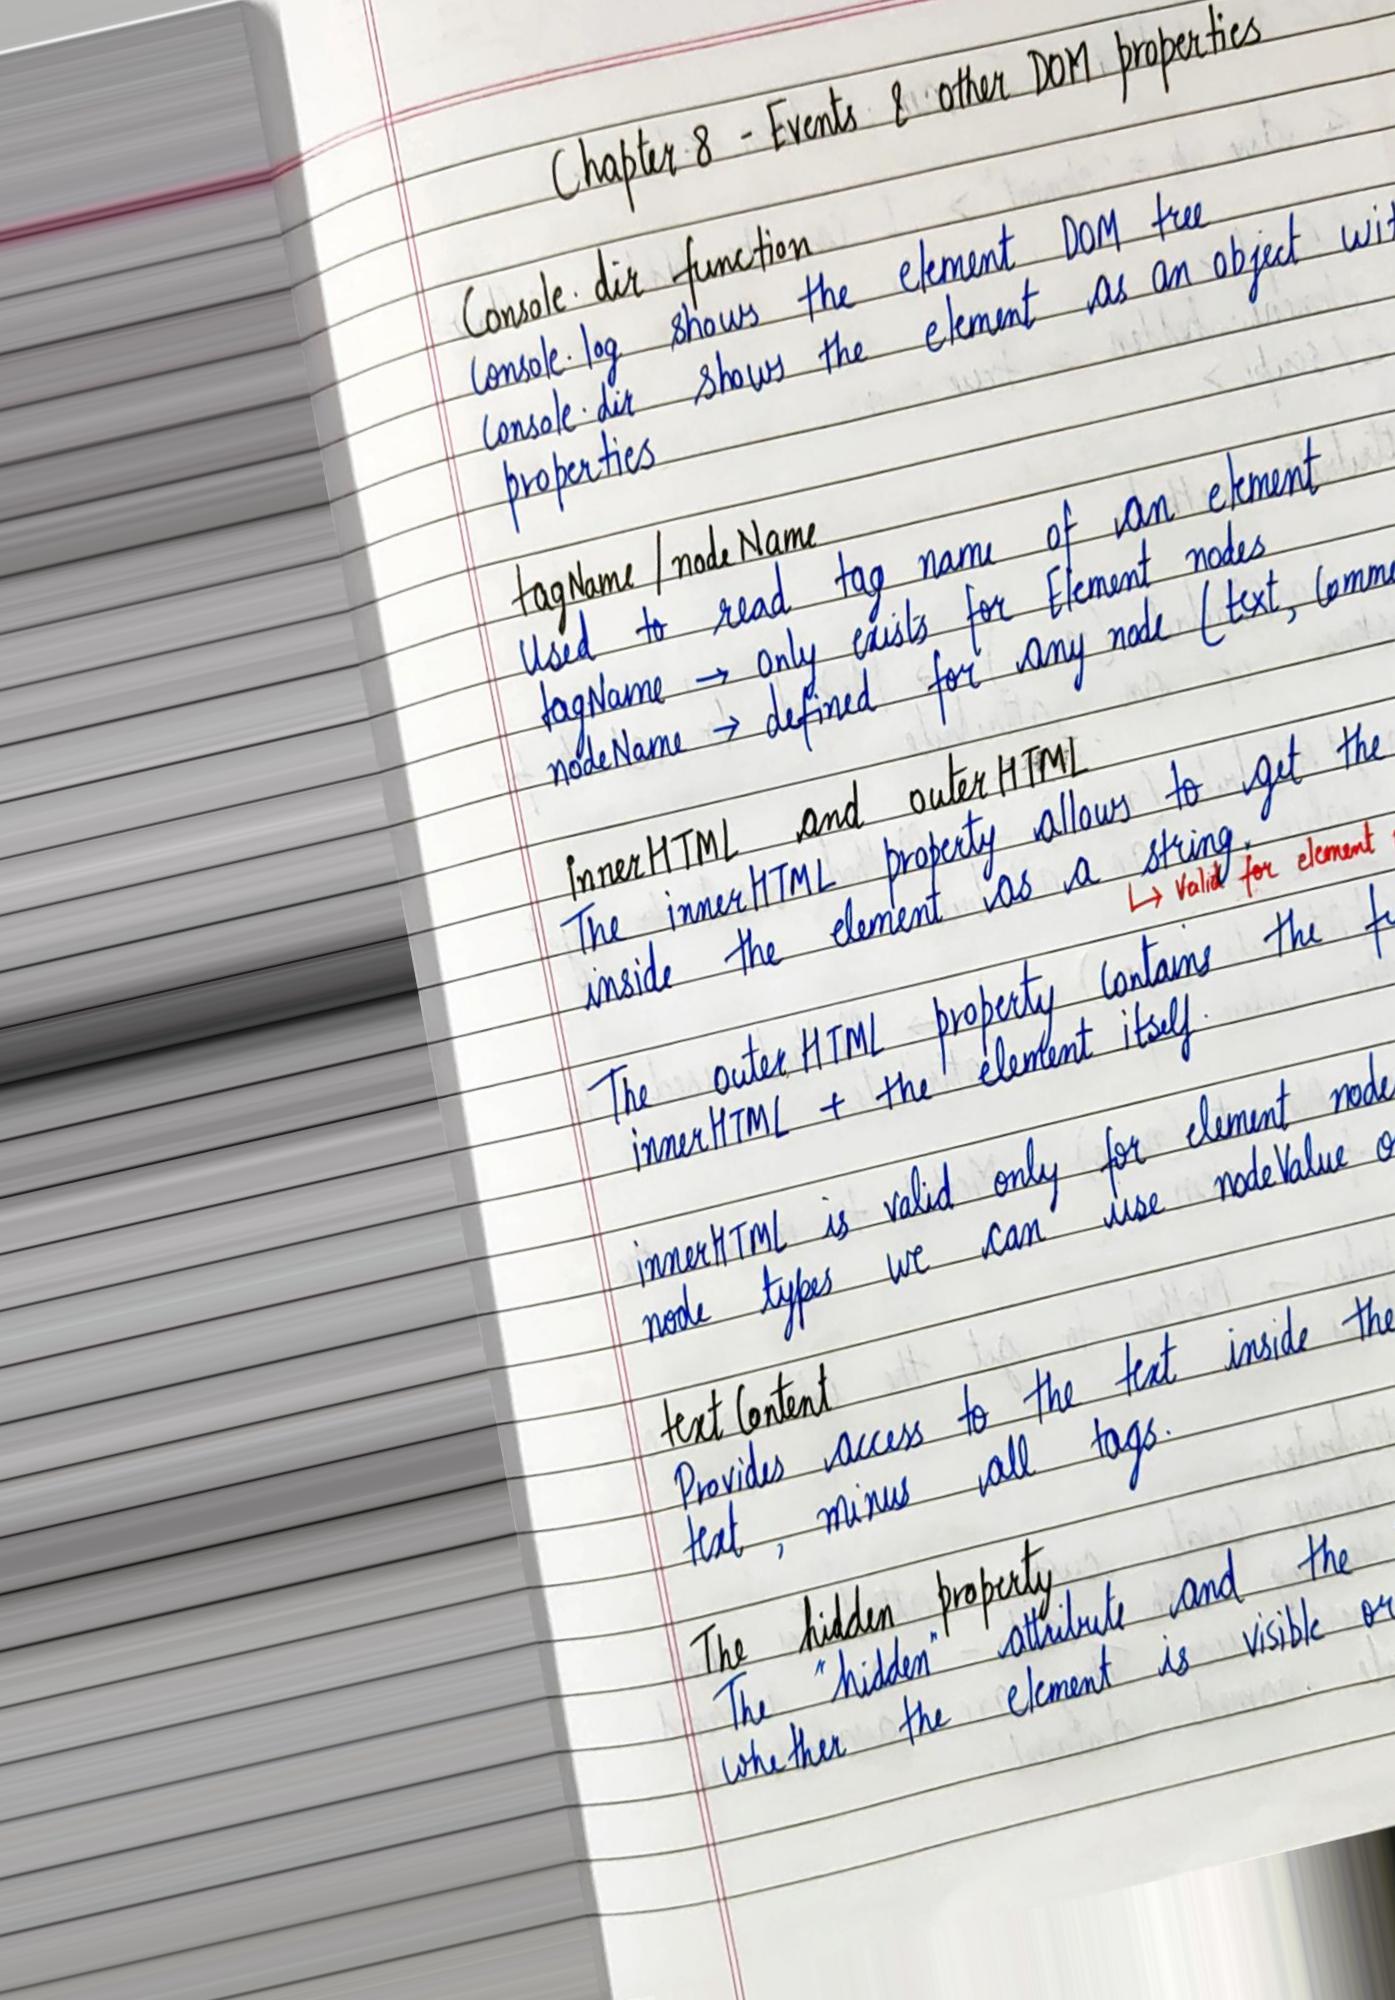 Chapter 8 - Events & other DOM properties
Console.dir function
Console.log shows the element DOM tree
Console.dir shows the element as an object
properties
tagName / nodeName
Used to read tag name of an element
tagName → only exists for Element nodes
nodeName → defined for any node (text,
innerHTML and outerHTML
The innerHTML property allows to get the
inside the element as a string.
↳ Valid for element
The outerHTML property contains the
innerHTML + the element itself.
innerHTML is valid only for element
node types we can use nodeValue
textContent
Provides access to the text inside the
text, minus all tags.
The hidden property
The "hidden" attribute and the
whether the element is visible or